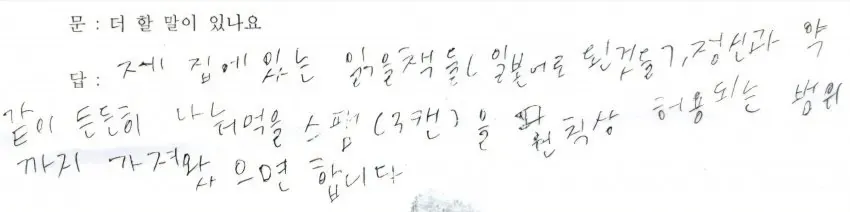 문 : 더 할 말이 있나요
답 : 제 집에 있는 읽을책들(일본어로 된것들), 정신과 약
같이 든든히 나눠먹을 스팸(3캔)을 원칙상 허용되는 범위
까지 가져와 으면 합니다